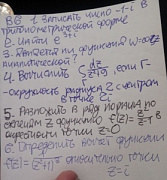 В6 1. Записать число -1-i в
тригонометрической форме
2. Найти e
3. Является ли функция w=
аналитической?
4. Вычислить ∫ dz/(z²+9), если Г-
-окружность радиуса 2 с центром
в точке 2i
5. Разложить в ряд по
функцию f(z)= в
окрестности точки z=0
6. Определить вычет функции
f(z)= относительно точки
z=i